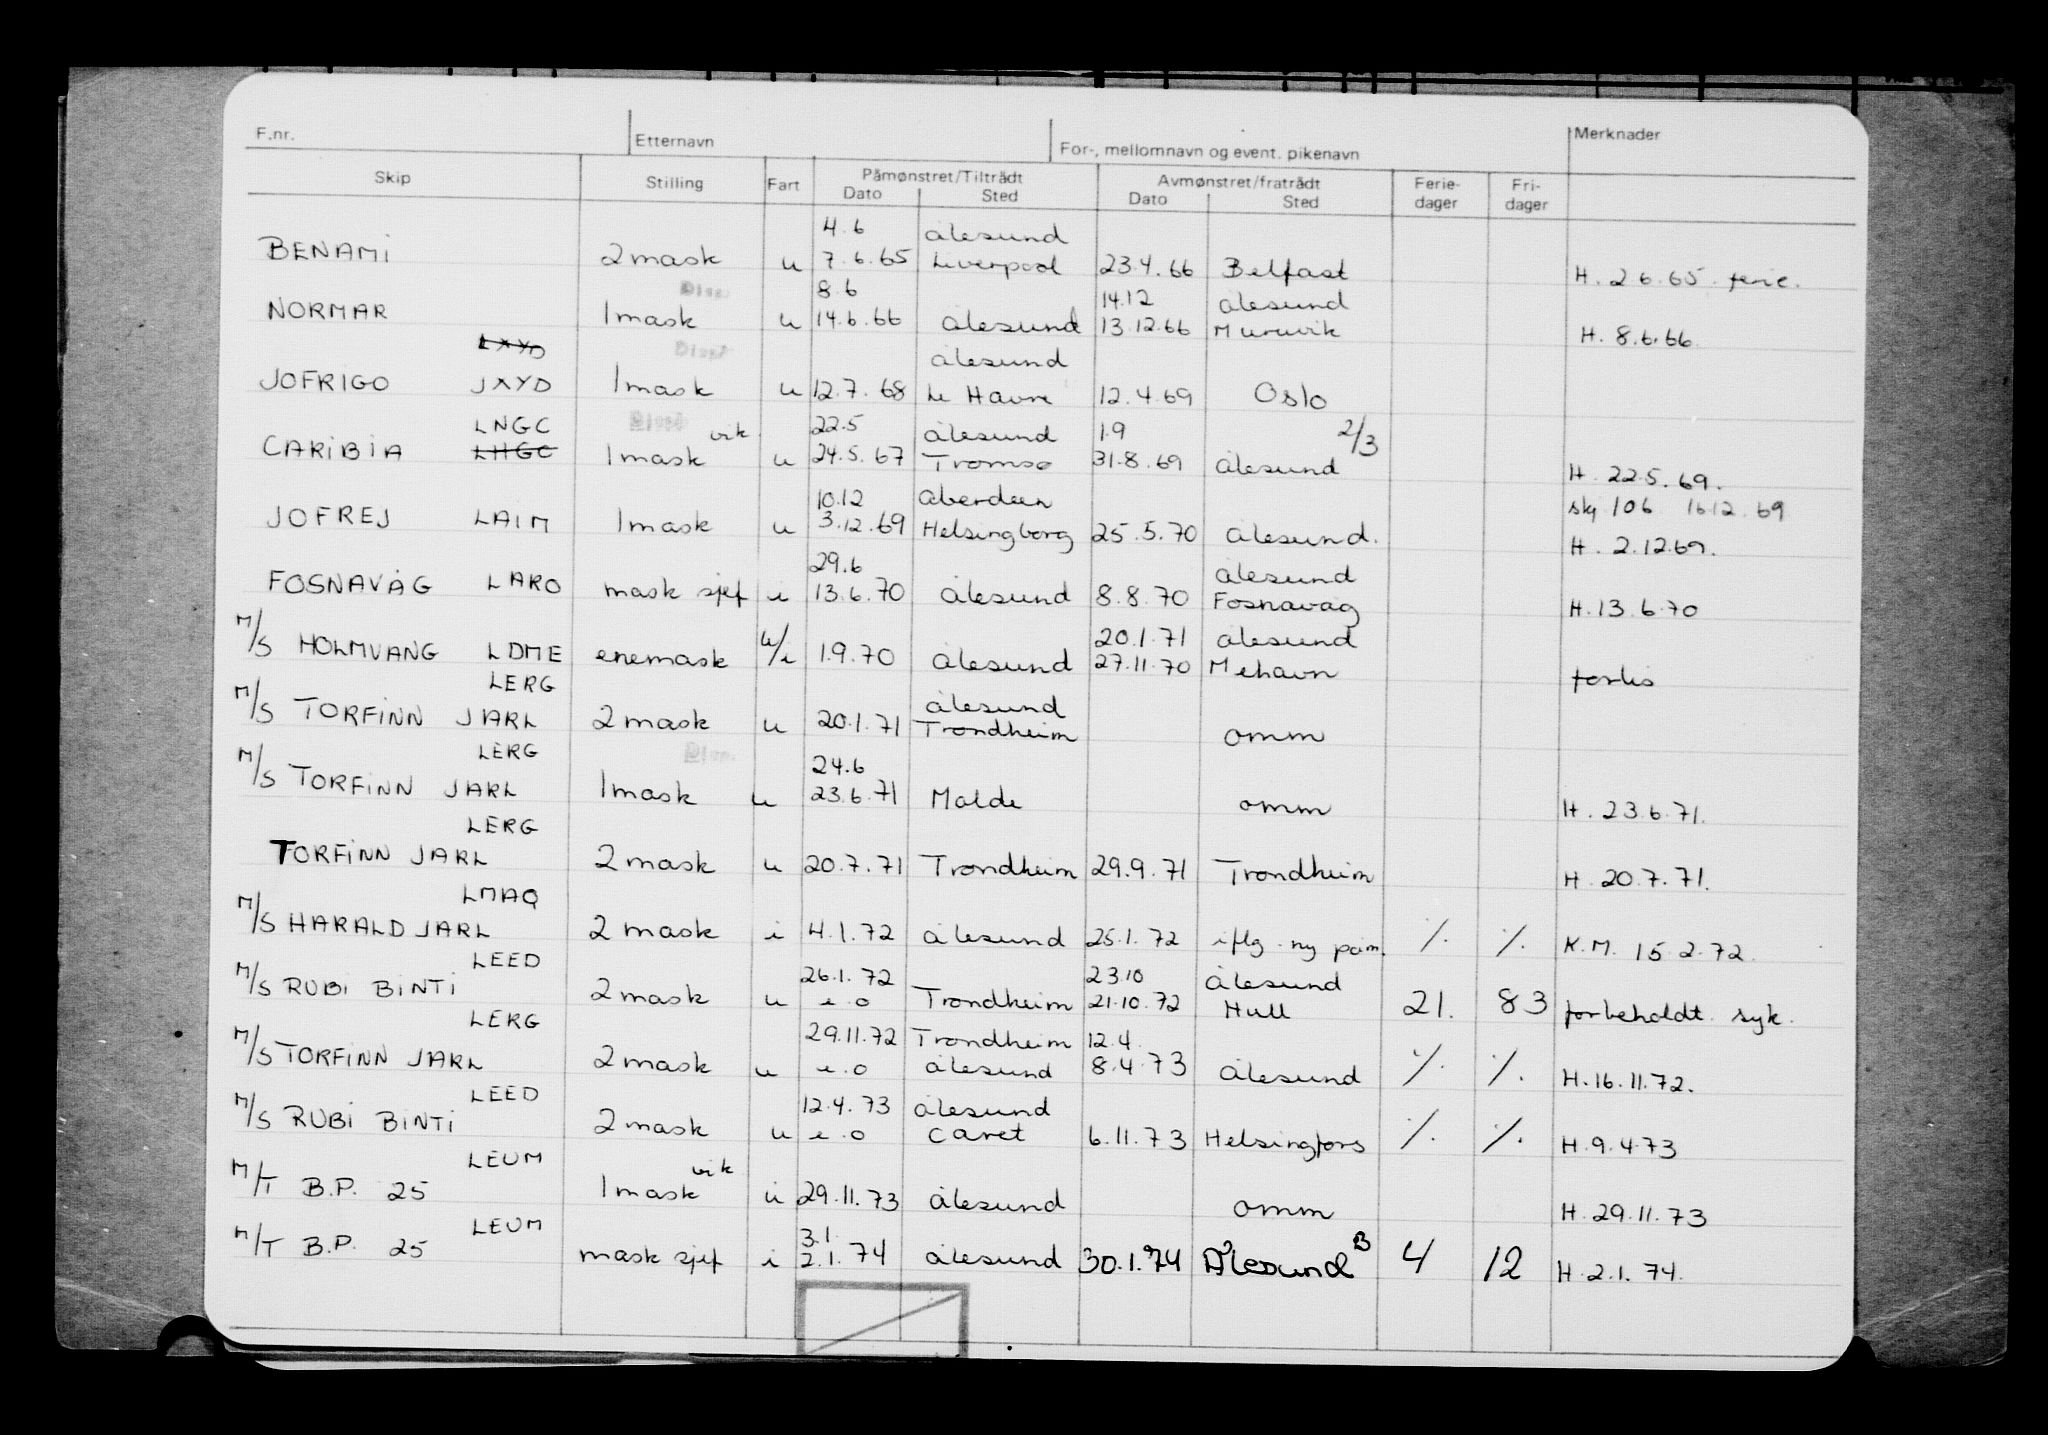 F.nr. Etternavn For-, mellomnavn og event. pikenavn Merknader
Skip Stilling Fart Påmønstret/Tiltrådt Avmønstret/fratrådt Ferie- Fri-
Dato Sted Dato Sted dager dager
4.6 Ålesund
BENAMI 2 mask u 7.6.65 Liverpool 23.4.66 Belfast H. 2.6.65. ferie.
8.6 14.12 Ålesund
NORMAR 1 mask u 14.6.66 Ålesund 13.12.66 Muruvik H. 8.6.66.
LXYD Ålesund
JOFRIGO JXYD 1 mask u 12.7.68 Le Havre 12.4.69 Oslo
LNGC vik. 22.5 Ålesund 1.9 2/3
CARIBIA LHGC 1 mask u 24.5.67 Tromsø 31.8.69 Ålesund H. 22.5.69.
10.12 Aberdeen skj 106 16.12.69
JOFREJ LAIM 1 mask u 3.12.69 Helsingborg 25.5.70 Ålesund. H. 2.12.69.
29.6 Ålesund
FOSNAVÅG LARO mask sjef i 13.6.70 Ålesund 8.8.70 Fosnavåg H. 13.6.70
20.1.71 Ålesund
M/S HOLMVANG LDME enemask u/i 1.9.70 Ålesund 27.11.70 Mehavn forlis
LERG Ålesund
M/S TORFINN JARL 2 mask u 20.1.71 Trondheim omm
LERG 24.6
M/S TORFINN JARL 1 mask u 23.6.71 Molde omm H. 23.6.71.
LERG
TORFINN JARL 2 mask u 20.7.71 Trondheim 29.9.71 Trondheim H. 20.7.71.
LMAQ
M/S HARALD JARL 2 mask i 4.1.72 Ålesund 25.1.72 iflg. ny påm. ·/. ·/. K.M. 15.2.72.
LEED 26.1.72 23.10 Ålesund
M/S RUBI BINTI 2 mask u e.o Trondheim 21.10.72 Hull 21. 83 forbeholdt syk.
LERG 29.11.72 Trondheim 12.4.
M/S TORFINN JARL 2 mask u e.o Ålesund 8.4.73 Ålesund ·/. ·/. H. 16.11.72.
LEED 12.4.73 Ålesund
M/S RUBI BINTI 2 mask u e.o Caret 6.11.73 Helsingfors ·/. ·/. H. 9.4.73
LEUM vik
M/T B.P. 25 1 mask i 29.11.73 Ålesund omm H. 29.11.73
LEUM 3.1
M/T B.P. 25 mask sjef i 2.1.74 Ålesund 30.1.74 Ålesund B 4 12 H. 2.1.74.